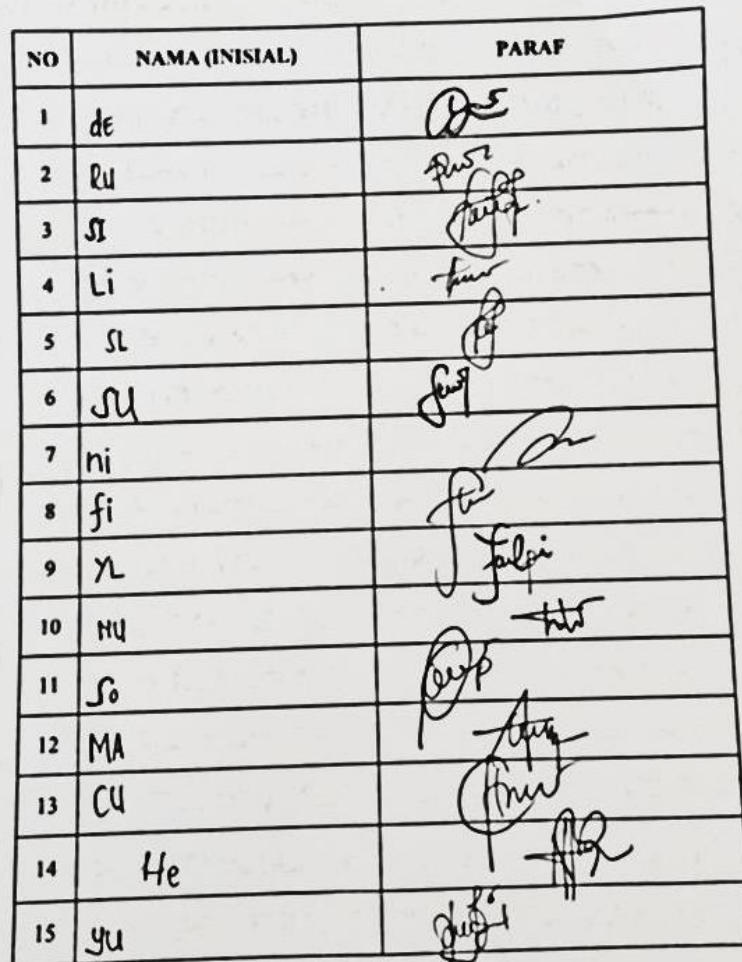 NO NAMA (INISIAL) PARAF
1 de
2 RU
3 SI
4 Li
5 SL
6 SU
7 ni
8 fi
9 YL
10 NU
11 So
12 MA
13 CU
14 He
15 yu